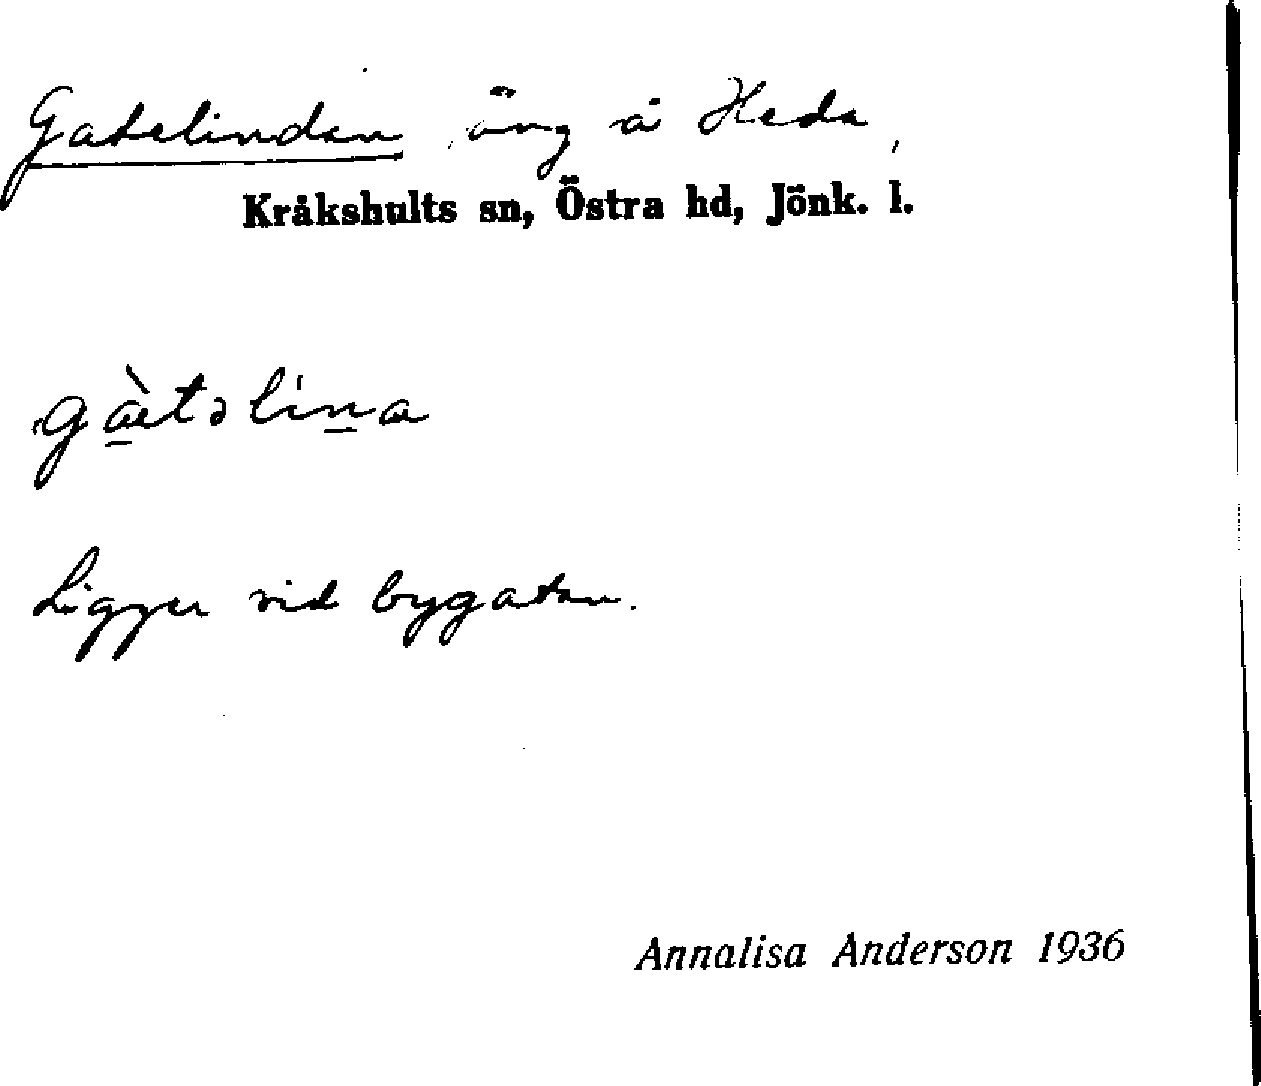 Gatelinden, äng å Heda,
Kråkshults sn, Östra hd, Jönk. l.
gàetəlína
Ligger vid bygatan.
Annalisa Anderson 1936